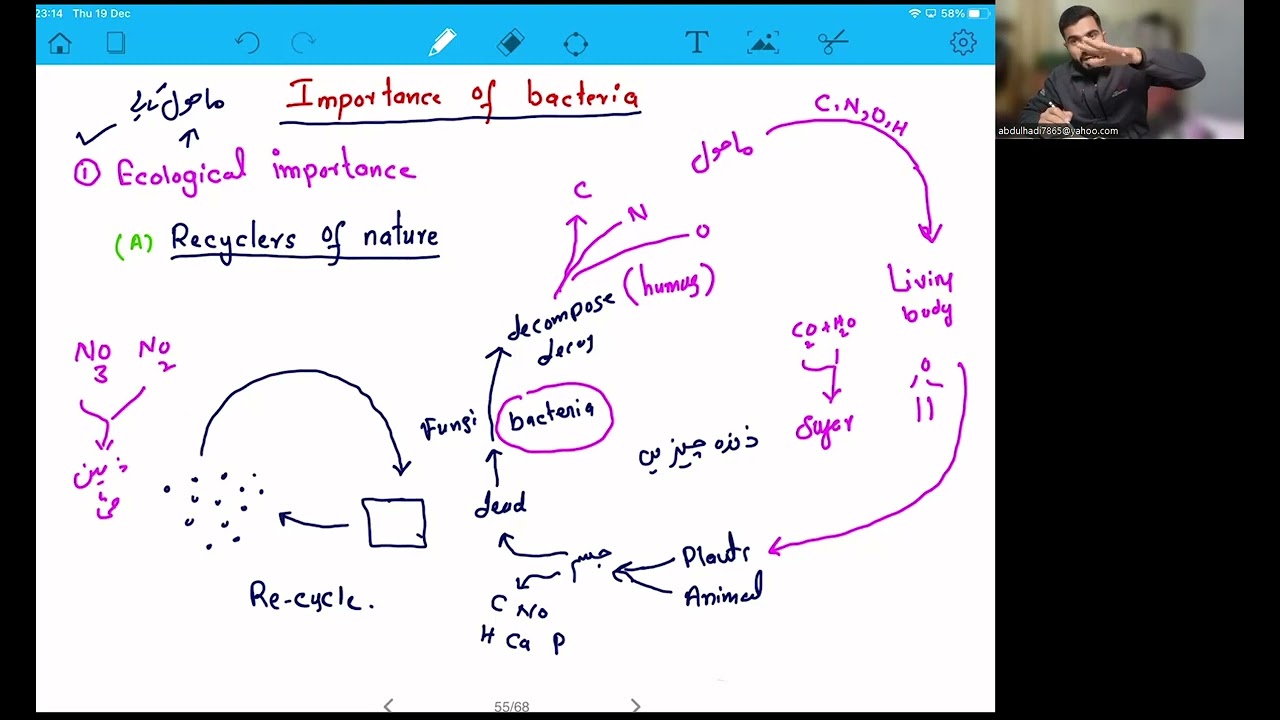 23:14 Thu 19 Dec
58%
T
abdulhadi7865@yahoo.com
Importance of bacteria
ماحول
① Ecological importance
(A) Recyclers of nature
C, N, O, H
ماحول
Living
body
C
N
O
(humus)
decompose
decay
CO2 + H2O
Sugar
NO3 NO2
زمین
میں
Fungi
bacteria
زندہ چیزیں
dead
جسم
Plants
Animal
C N O
H Ca P
Re-cycle.
55/68